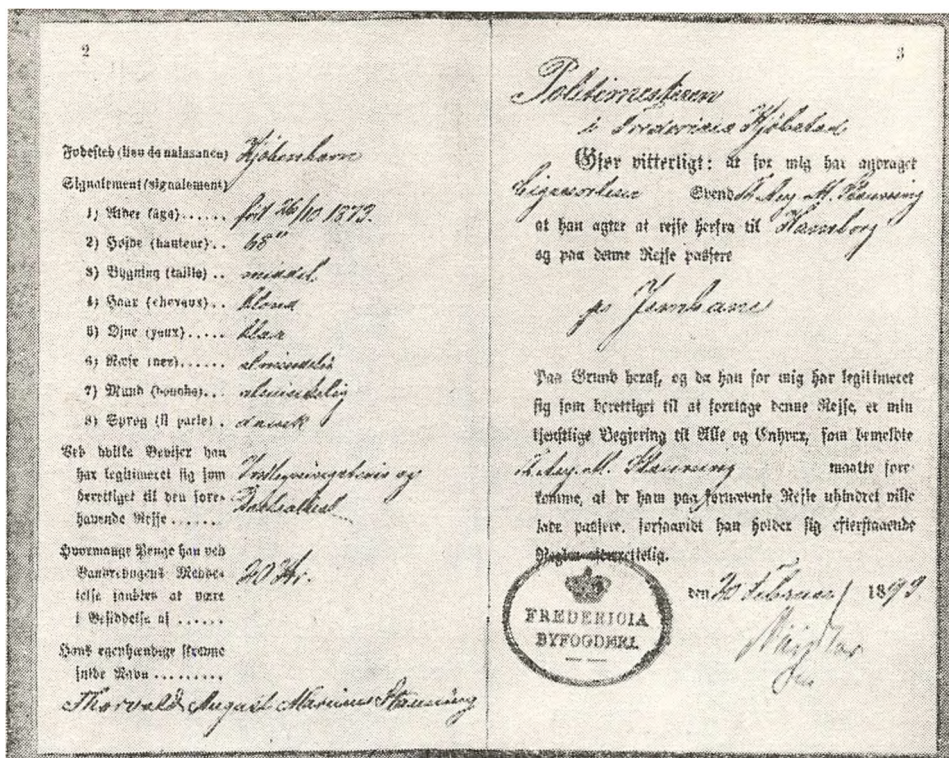 2
Fødested (lieu de naissance) Kjøbenhavn
Signalement (signalement)
1) Alder (âge)...... født 26/10 1873.
2) Højde (hauteur).. 68"
3) Bygning (taille).. middel
4) Haar (cheveux).. blond
5) Øine (yeux)..... blaa
6) Næse (nez)...... almindelig
7) Mund (bouche).. almindelig
8) Sprog (il parle). dansk
Ved hvilke Beviser han
har legitimeret sig som
berettiget til den fore-
havende Rejse......
og
Hvormange Penge han ved
Vandrebogens Medde-
lelse fandtes at være
i Besiddelse af ......
20 Kr.
Hans egenhændige skrevne
fulde Navn .........
Thorvald August Marinus Stauning
3
Politimesteren
i Fredericia Kjøbstad
Gjør vitterligt: at for mig har andraget
Svend Th. Aug. M. Stauning
at han agter at rejse herfra til Hamborg
og paa denne Rejse passere
pr Jernbane
Paa Grund heraf, og da han for mig har legitimeret
sig som berettiget til at foretage denne Rejse, er min
tjenstlige Begjering til Alle og Enhver, som bemeldte
Th. Aug. M. Stauning maatte fore-
komme, at de ham paa fornævnte Rejse uhindret ville
lade passere, forsaavidt han holder sig efterstaaende
Regler efterrettelig.
FREDERICIA
BYFOGDERI.
den 20 Februar 1893.